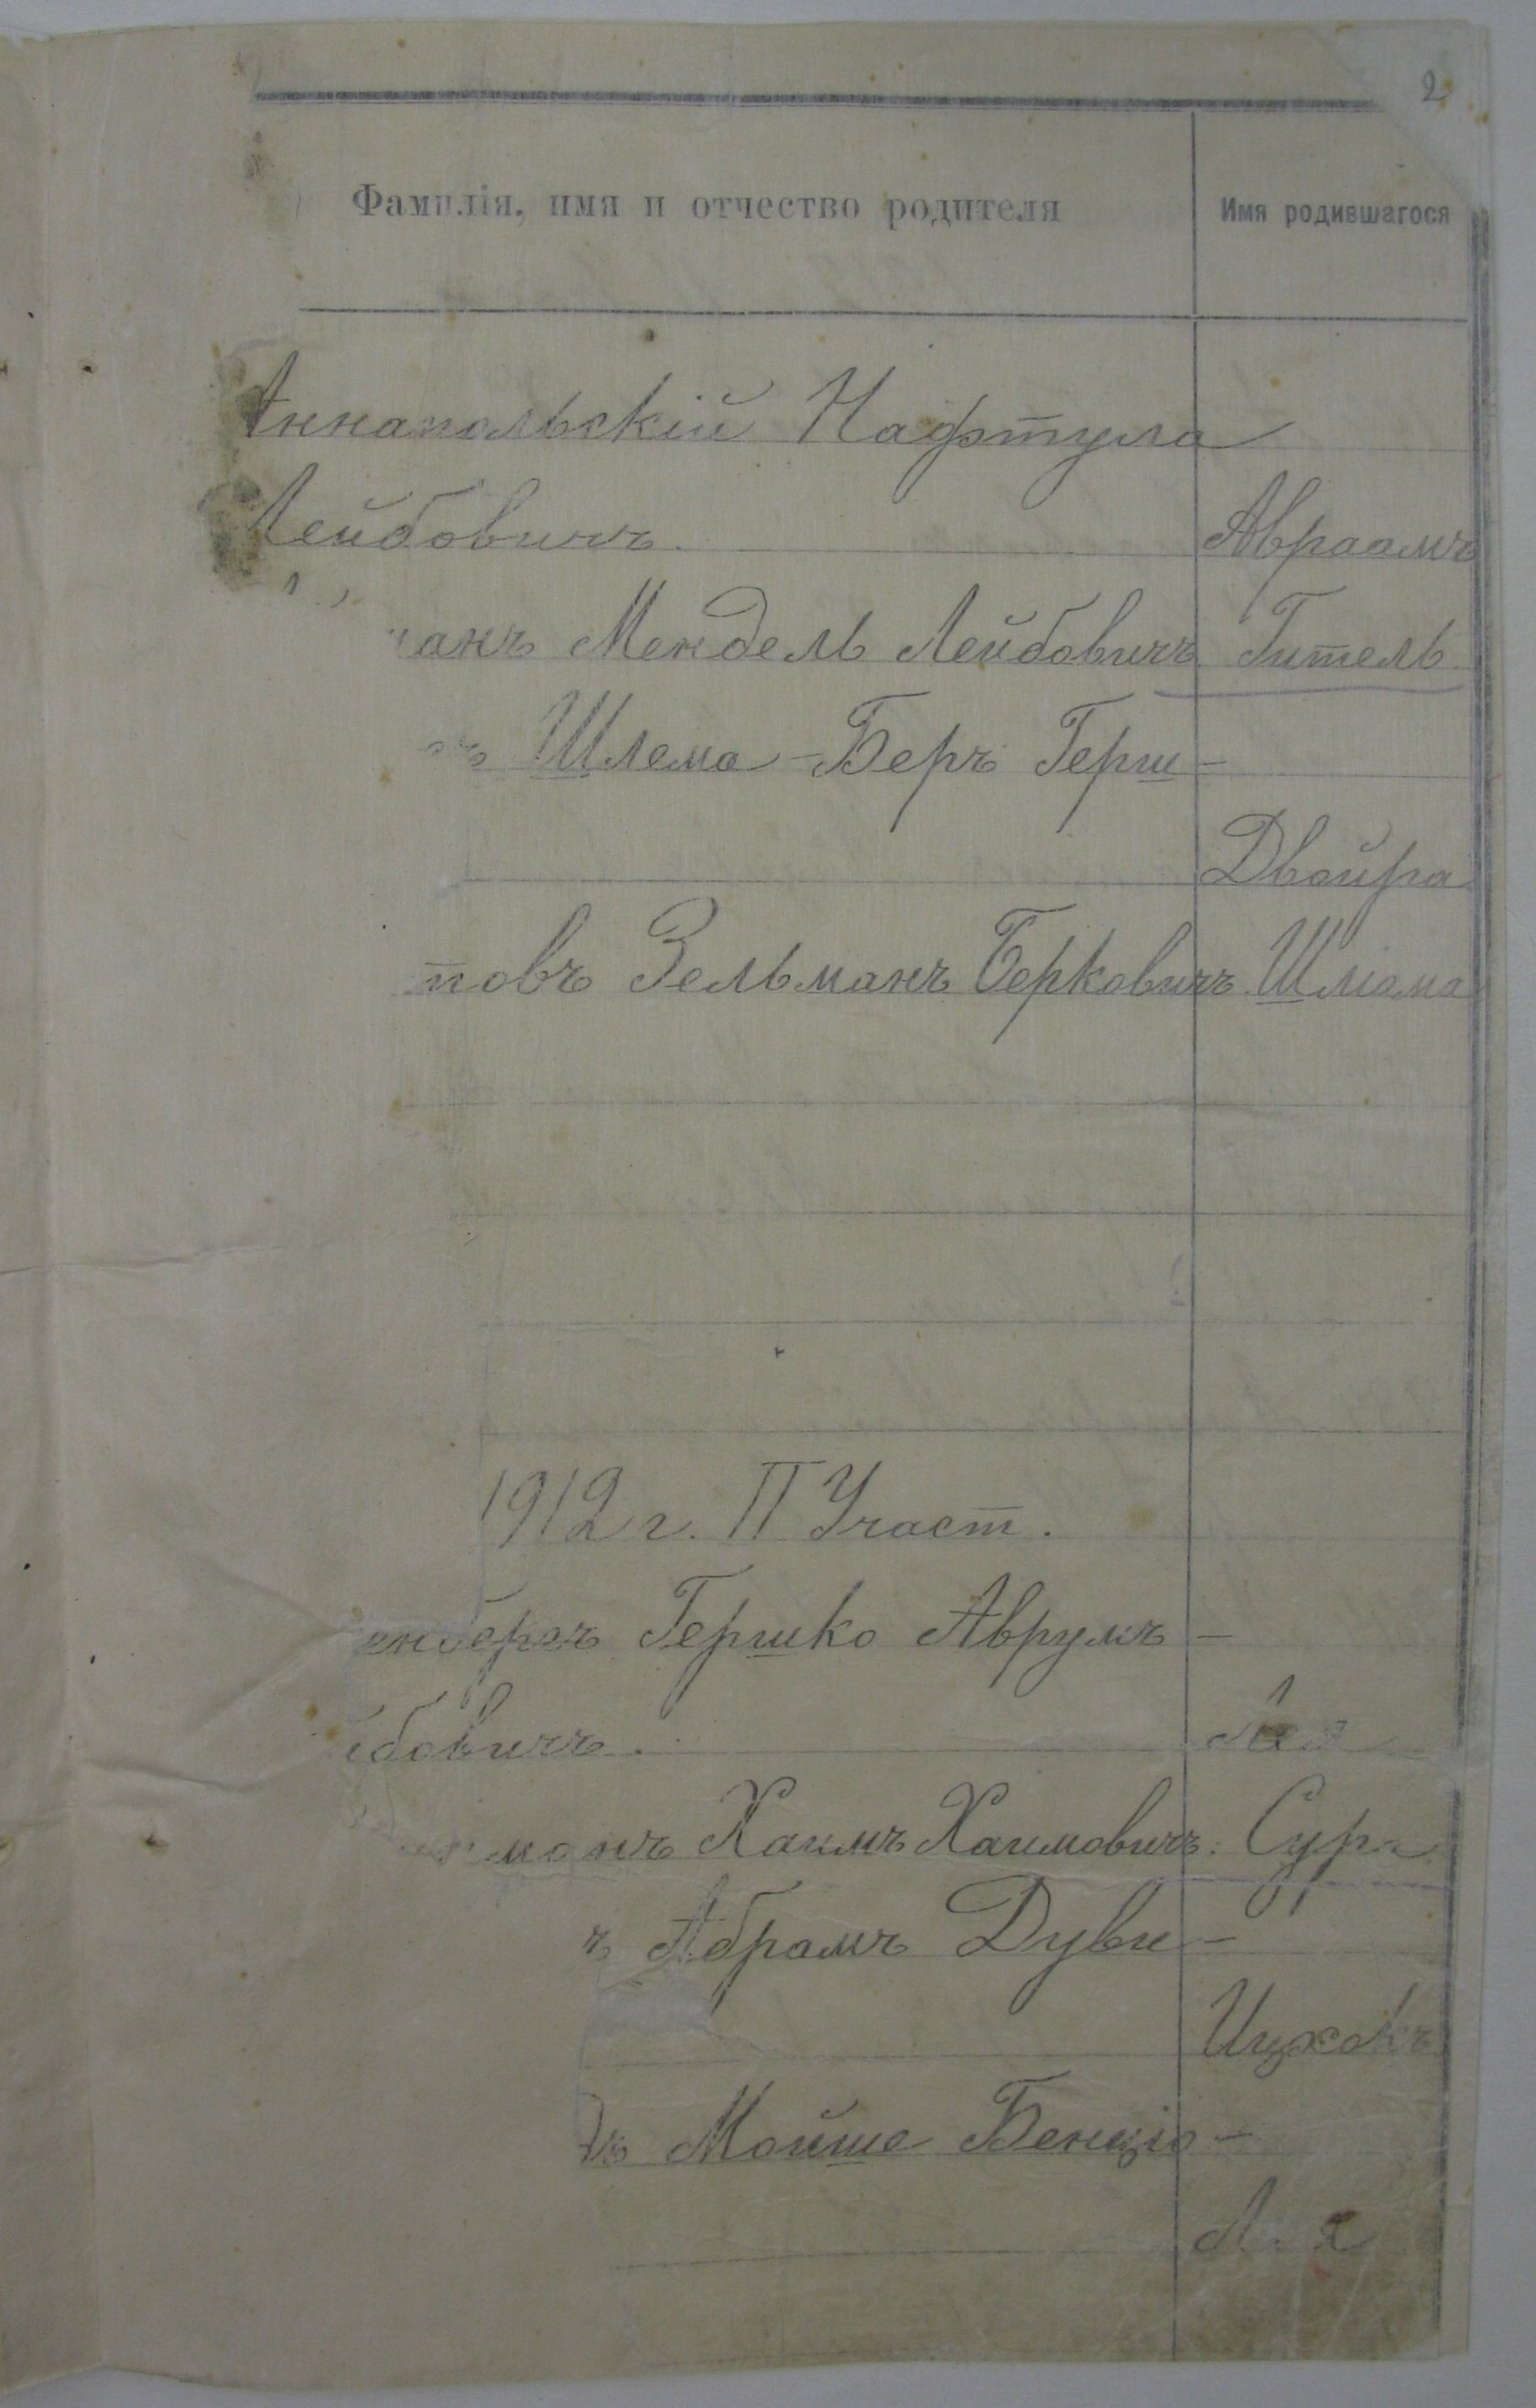 2
Фамилія, имя и отчество родителя Имя родившагося
Аннапольскій Нафтула
Лейбовичъ. Авраамъ
анъ Мендель Лейбовичъ Гитель
ъ Шлема-Беръ Герш-
Двойра
товъ Зельманъ Берковичъ Шлема
1912 г. II Участ.
енбергъ Гершко Аврумъ -
бовичъ. Лея
манъ Хаимъ Хаимовичъ. Сура
ъ Абрамъ Дуви-
Ицхокъ
ъ Мойше Бенціо-